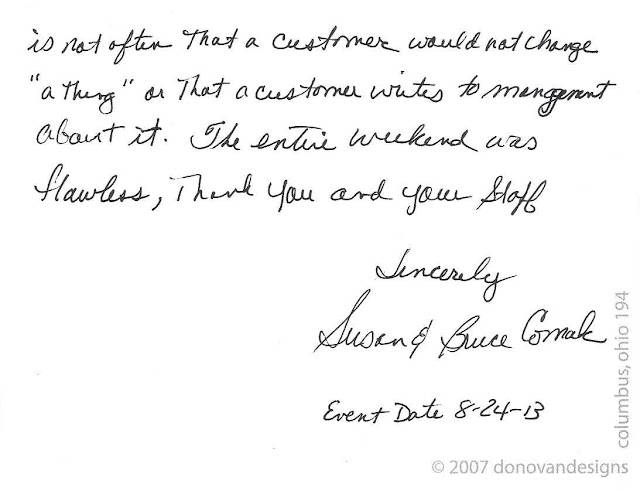 is not often That a customer would not change
"a thing" or That a customer writes to management
about it. The entire weekend was
flawless, Thank you and your Staff
Sincerely
Susan & Bruce Comak
Event Date 8-24-13
columbus, ohio 194
© 2007 donovandesigns